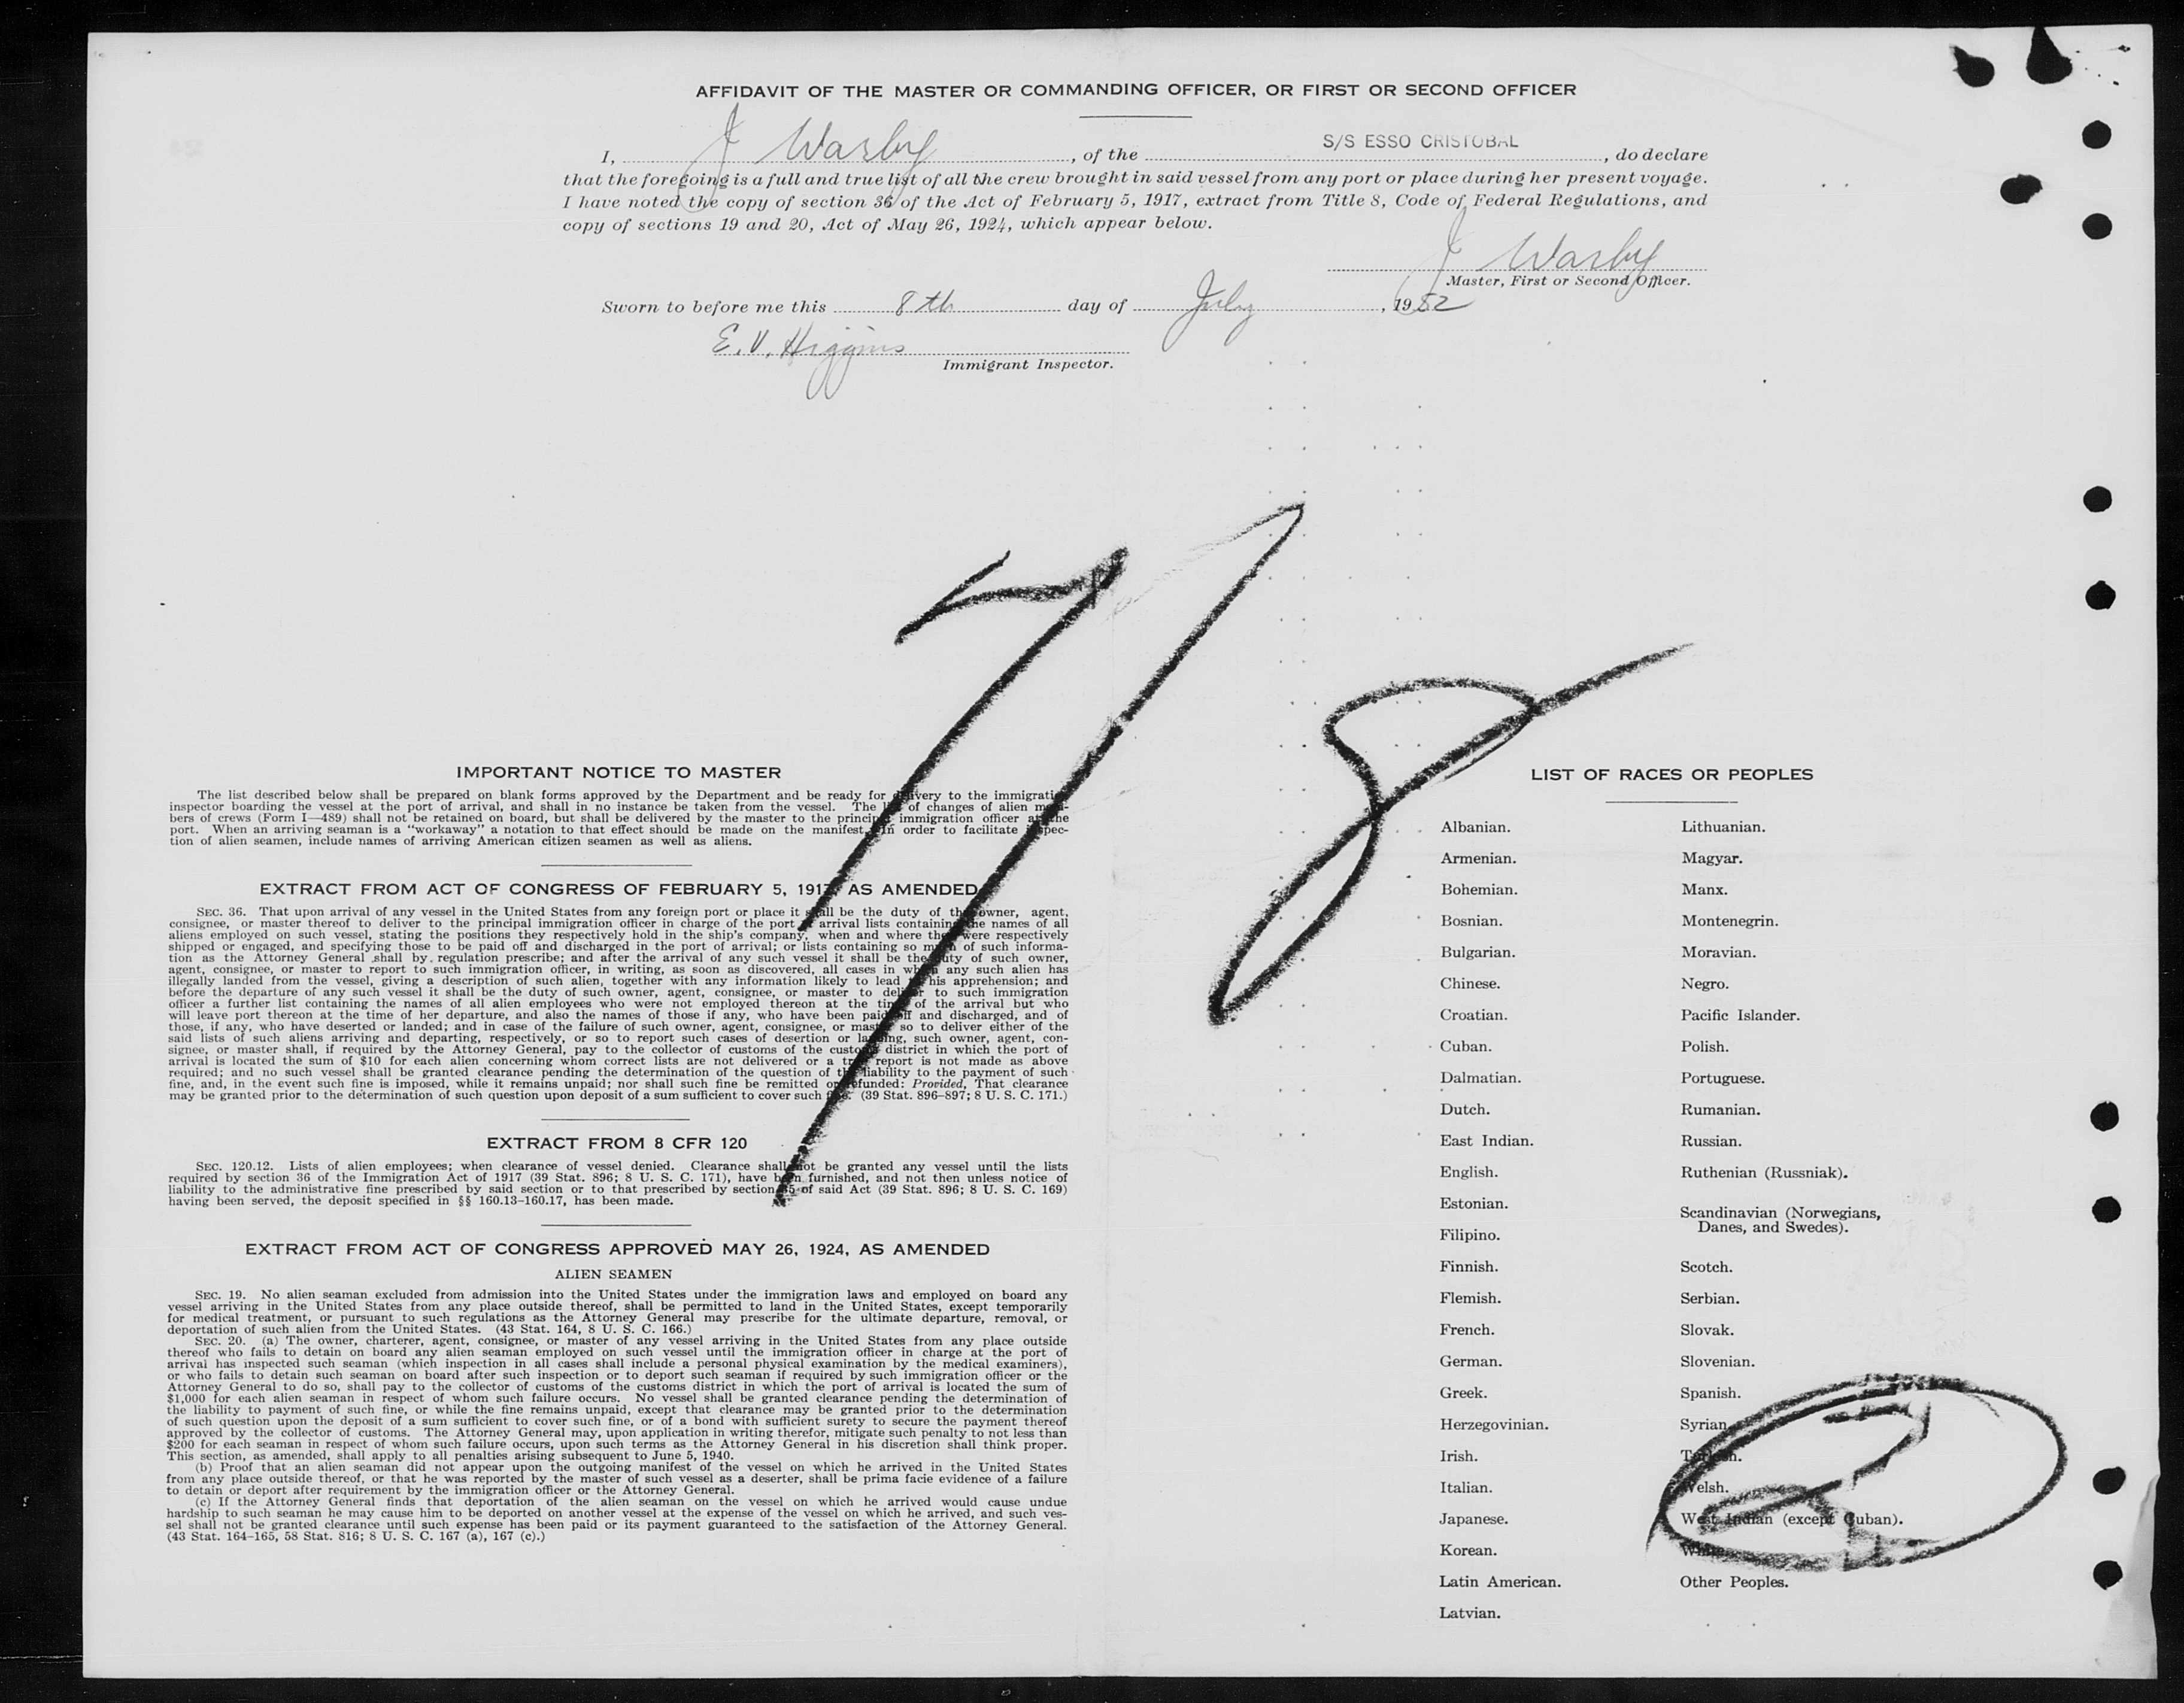 AFFIDAVIT OF THE MASTER OR COMMANDING OFFICER, OR FIRST OR SECOND OFFICER
I, J Warby, of the S/S ESSO CRISTOBAL, do declare
that the foregoing is a full and true list of all the crew brought in said vessel from any port or place during her present voyage.
I have noted the copy of section 36 of the Act of February 5, 1917, extract from Title 8, Code of Federal Regulations, and
copy of sections 19 and 20, Act of May 26, 1924, which appear below.
J Warby
Master, First or Second Officer.
Sworn to before me this 8th day of July, 1952
E. V. Higgins
Immigrant Inspector.
7/8
IMPORTANT NOTICE TO MASTER
The list described below shall be prepared on blank forms approved by the Department and be ready for delivery to the immigration
inspector boarding the vessel at the port of arrival, and shall in no instance be taken from the vessel. The list of changes of alien mem-
bers of crews (Form I—489) shall not be retained on board, but shall be delivered by the master to the principal immigration officer at the
port. When an arriving seaman is a "workaway" a notation to that effect should be made on the manifest. In order to facilitate inspec-
tion of alien seamen, include names of arriving American citizen seamen as well as aliens.
EXTRACT FROM ACT OF CONGRESS OF FEBRUARY 5, 1917, AS AMENDED
SEC. 36. That upon arrival of any vessel in the United States from any foreign port or place it shall be the duty of the owner, agent,
consignee, or master thereof to deliver to the principal immigration officer in charge of the port of arrival lists containing the names of all
aliens employed on such vessel, stating the positions they respectively hold in the ship's company, when and where they were respectively
shipped or engaged, and specifying those to be paid off and discharged in the port of arrival; or lists containing so much of such informa-
tion as the Attorney General shall by regulation prescribe; and after the arrival of any such vessel it shall be the duty of such owner,
agent, consignee, or master to report to such immigration officer, in writing, as soon as discovered, all cases in which any such alien has
illegally landed from the vessel, giving a description of such alien, together with any information likely to lead to his apprehension; and
before the departure of any such vessel it shall be the duty of such owner, agent, consignee, or master to deliver to such immigration
officer a further list containing the names of all alien employees who were not employed thereon at the time of the arrival but who
will leave port thereon at the time of her departure, and also the names of those if any, who have been paid off and discharged, and of
those, if any, who have deserted or landed; and in case of the failure of such owner, agent, consignee, or master so to deliver either of the
said lists of such aliens arriving and departing, respectively, or so to report such cases of desertion or landing, such owner, agent, con-
signee, or master shall, if required by the Attorney General, pay to the collector of customs of the customs district in which the port of
arrival is located the sum of $10 for each alien concerning whom correct lists are not delivered or a true report is not made as above
required; and no such vessel shall be granted clearance pending the determination of the question of the liability to the payment of such
fine, and, in the event such fine is imposed, while it remains unpaid; nor shall such fine be remitted or refunded: Provided, That clearance
may be granted prior to the determination of such question upon deposit of a sum sufficient to cover such fine. (39 Stat. 896–897; 8 U. S. C. 171.)
EXTRACT FROM 8 CFR 120
SEC. 120.12. Lists of alien employees; when clearance of vessel denied. Clearance shall not be granted any vessel until the lists
required by section 36 of the Immigration Act of 1917 (39 Stat. 896; 8 U. S. C. 171), have been furnished, and not then unless notice of
liability to the administrative fine prescribed by said section or to that prescribed by section 35 of said Act (39 Stat. 896; 8 U. S. C. 169)
having been served, the deposit specified in §§ 160.13–160.17, has been made.
EXTRACT FROM ACT OF CONGRESS APPROVED MAY 26, 1924, AS AMENDED
ALIEN SEAMEN
SEC. 19. No alien seaman excluded from admission into the United States under the immigration laws and employed on board any
vessel arriving in the United States from any place outside thereof, shall be permitted to land in the United States, except temporarily
for medical treatment, or pursuant to such regulations as the Attorney General may prescribe for the ultimate departure, removal, or
deportation of such alien from the United States. (43 Stat. 164, 8 U. S. C. 166.)
SEC. 20. (a) The owner, charterer, agent, consignee, or master of any vessel arriving in the United States from any place outside
thereof who fails to detain on board any alien seaman employed on such vessel until the immigration officer in charge at the port of
arrival has inspected such seaman (which inspection in all cases shall include a personal physical examination by the medical examiners),
or who fails to detain such seaman on board after such inspection or to deport such seaman if required by such immigration officer or the
Attorney General to do so, shall pay to the collector of customs of the customs district in which the port of arrival is located the sum of
$1,000 for each alien seaman in respect of whom such failure occurs. No vessel shall be granted clearance pending the determination of
the liability to payment of such fine, or while the fine remains unpaid, except that clearance may be granted prior to the determination
of such question upon the deposit of a sum sufficient to cover such fine, or of a bond with sufficient surety to secure the payment thereof
approved by the collector of customs. The Attorney General may, upon application in writing therefor, mitigate such penalty to not less than
$200 for each seaman in respect of whom such failure occurs, upon such terms as the Attorney General in his discretion shall think proper.
This section, as amended, shall apply to all penalties arising subsequent to June 5, 1940.
(b) Proof that an alien seaman did not appear upon the outgoing manifest of the vessel on which he arrived in the United States
from any place outside thereof, or that he was reported by the master of such vessel as a deserter, shall be prima facie evidence of a failure
to detain or deport after requirement by the immigration officer or the Attorney General.
(c) If the Attorney General finds that deportation of the alien seaman on the vessel on which he arrived would cause undue
hardship to such seaman he may cause him to be deported on another vessel at the expense of the vessel on which he arrived, and such ves-
sel shall not be granted clearance until such expense has been paid or its payment guaranteed to the satisfaction of the Attorney General.
(43 Stat. 164–165, 58 Stat. 816; 8 U. S. C. 167 (a), 167 (c).)
LIST OF RACES OR PEOPLES
Albanian.
Armenian.
Bohemian.
Bosnian.
Bulgarian.
Chinese.
Croatian.
Cuban.
Dalmatian.
Dutch.
East Indian.
English.
Estonian.
Filipino.
Finnish.
Flemish.
French.
German.
Greek.
Herzegovinian.
Irish.
Italian.
Japanese.
Korean.
Latin American.
Latvian.
Lithuanian.
Magyar.
Manx.
Montenegrin.
Moravian.
Negro.
Pacific Islander.
Polish.
Portuguese.
Rumanian.
Russian.
Ruthenian (Russniak).
Scandinavian (Norwegians,
Danes, and Swedes).
Scotch.
Serbian.
Slovak.
Slovenian.
Spanish.
Syrian.
Turkish.
Welsh.
West Indian (except Cuban).
White.
Other Peoples.